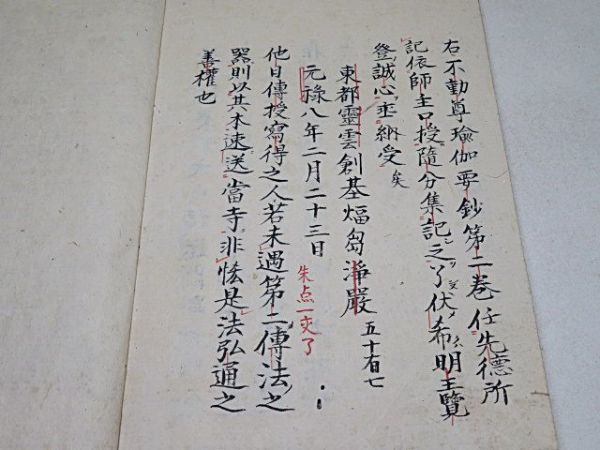 右不動尊瑜伽要鈔第二卷任先德所
記依師主口授隨分集記之了伏希明王覽
登誠心垂納受矣
東都靈雲創基煴芻淨嚴五十有七
元祿八年二月二十三日
朱点一交了
他日傳授寫得之人若未遇第二傳法之
器則以其本速送當寺非悋是法弘通之
善權也